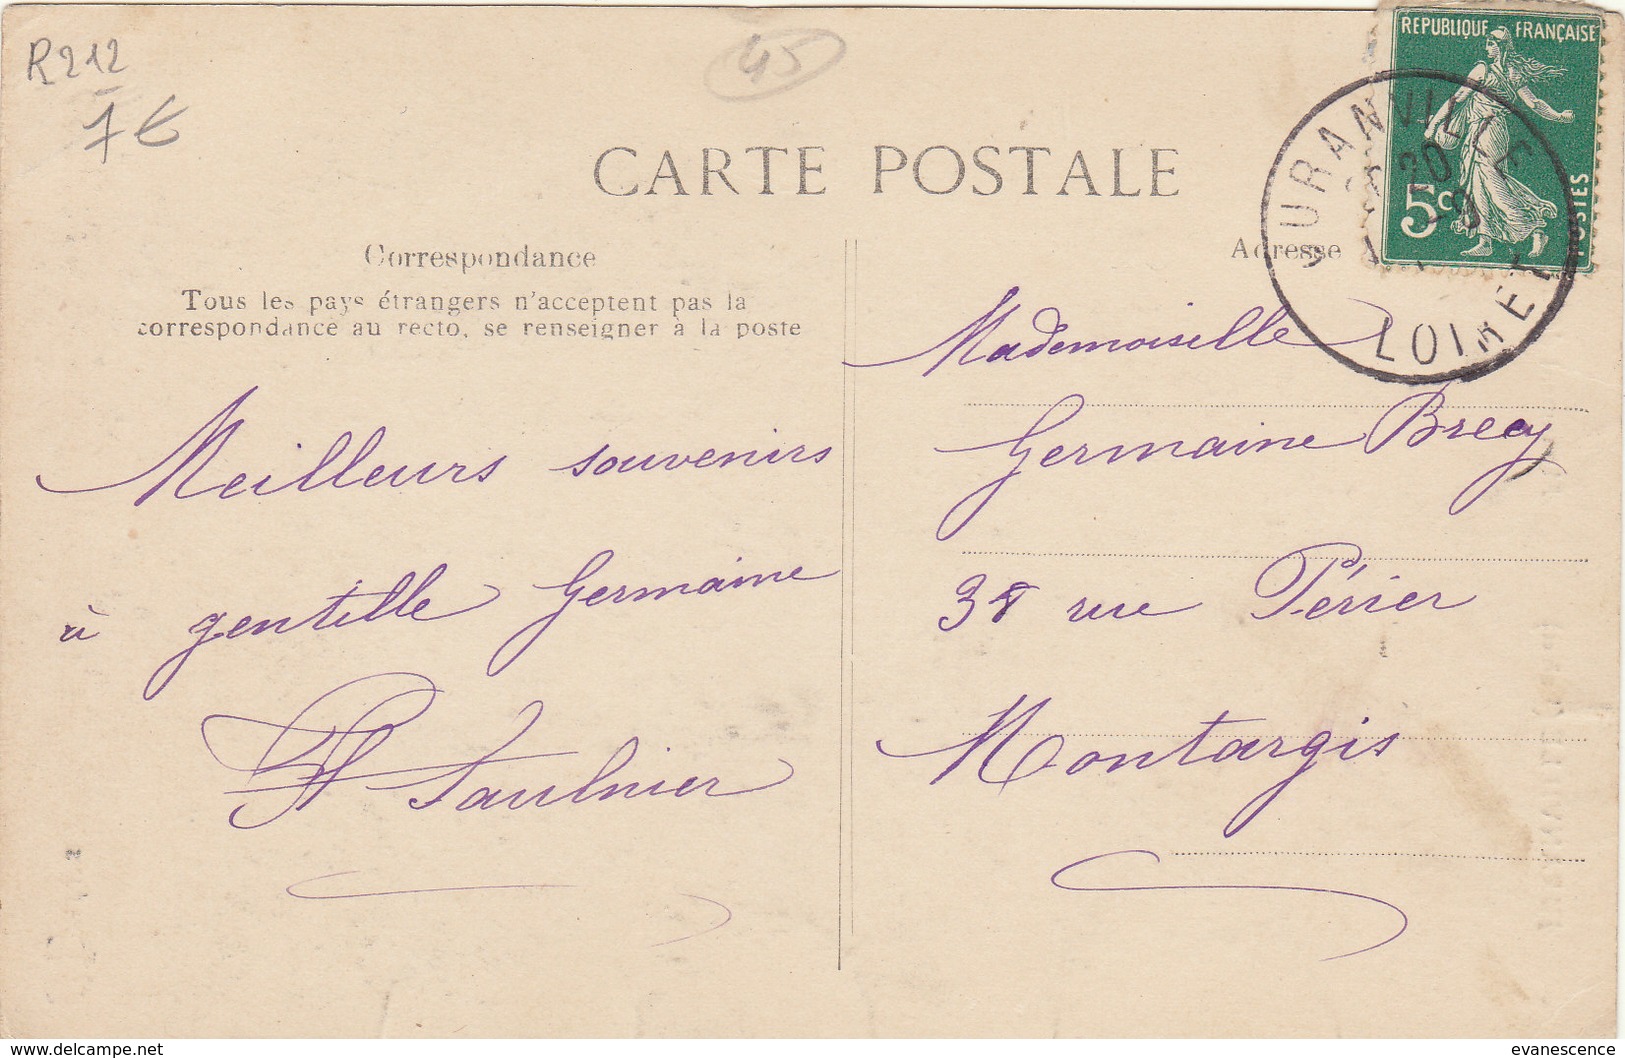 R212
7€
45
CARTE POSTALE
REPUBLIQUE FRANÇAISE
5c
POSTES
JURANVILLE
20
LOIRET
Correspondance
Tous les pays étrangers n'acceptent pas la
correspondance au recto, se renseigner à la poste
Meilleurs souvenirs
à gentille Germaine
Saulnier
Adresse
Mademoiselle
Germaine Brecy
38 rue Périer
Montargis
www.delcampe.net
evanescence